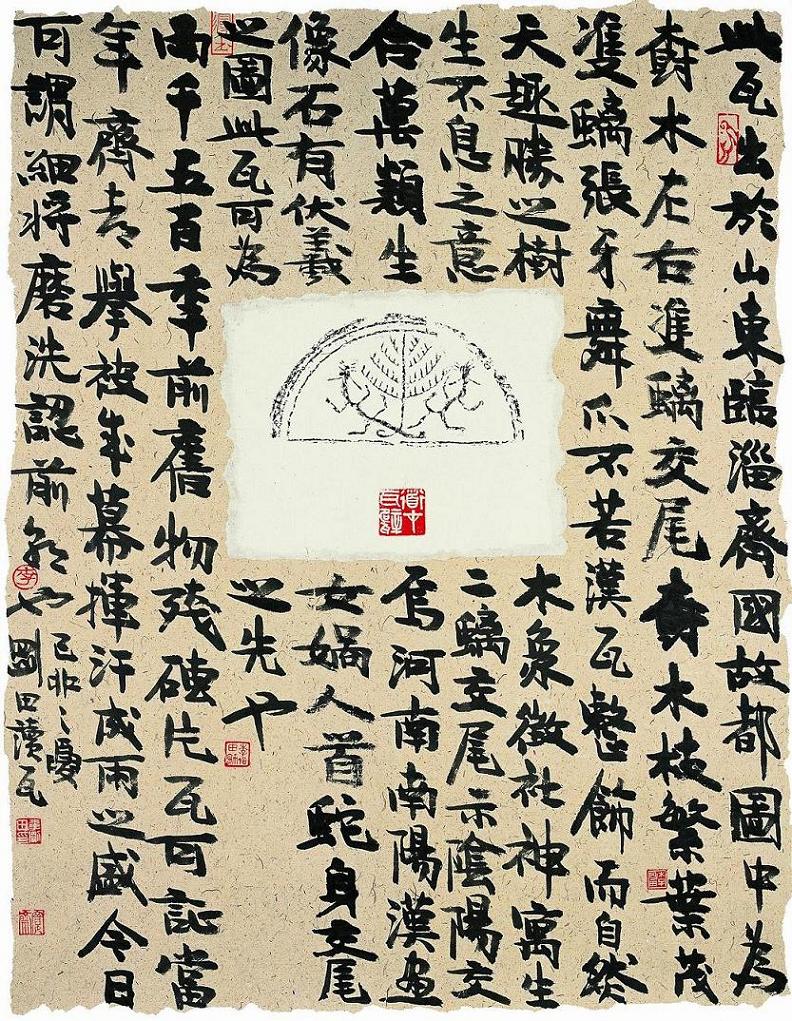 此瓦出於山東臨淄齊國故都圖中為
壽木左右隻螭交尾壽木枝繁葉茂
隻螭張牙舞爪不若漢瓦整飾而自然
天趣勝之樹木象徵社神寓生
生不息之意二螭交尾示陰陽交
合萬類生焉河南南陽漢畫
像石有伏羲女媧人首蛇身交尾
之圖此瓦可為之先也
兩千五百年前舊物殘磚片瓦可証當
年齊都舉袂成幕揮汗成雨之盛今日
可謂細將磨洗認前朝也
剛田讀瓦